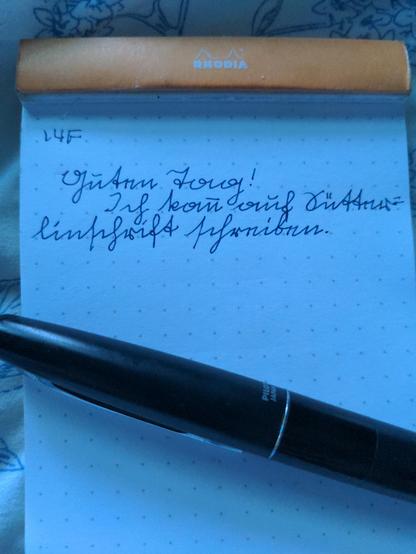 RHODIA
14F
Guten Tag!
Ich kan̄ auf Sütter=
linschrift schreiben.